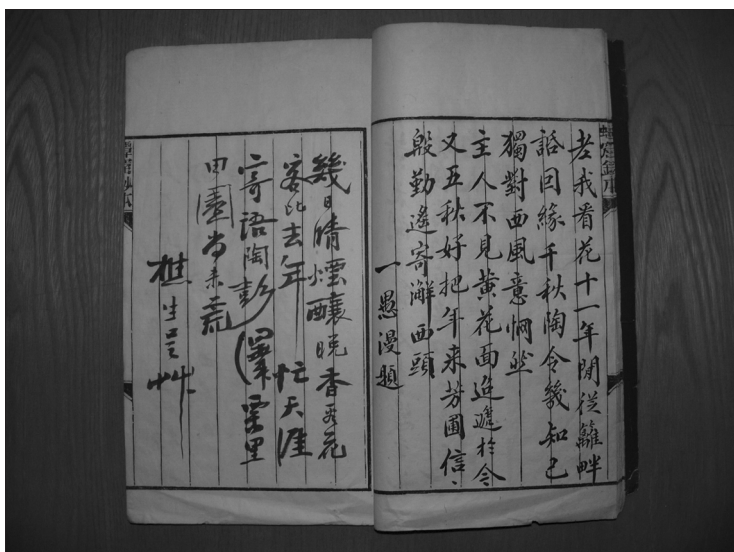 老我看花十一年閒從籬畔
話因緣千秋陶令幾知己
獨對西風意惘然
主人不見黃花面迢遞於今
又五秋好把年來芳圃信
殷勤遙寄澥西頭
一愚漫題
幾日晴煙釀晚香看花
客比去年忙天涯
寄語陶彭澤栗里
田園尚未荒
樵生呈艸